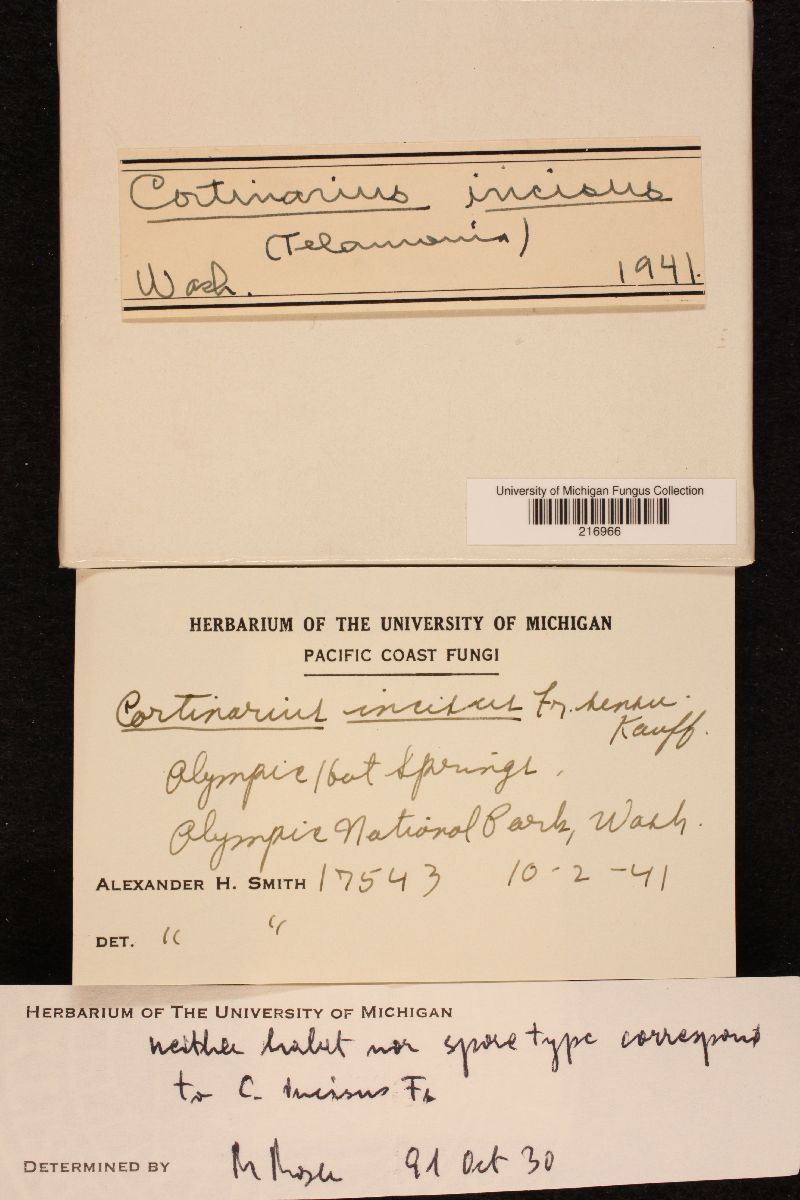 Cortinarius incisus
(Telamonia)
Wash. 1941.
University of Michigan Fungus Collection
216966
HERBARIUM OF THE UNIVERSITY OF MICHIGAN
PACIFIC COAST FUNGI
Cortinarius incisus Fr. sensu
Kauff.
Olympic Hot Springs,
Olympic National Park, Wash.
ALEXANDER H. SMITH 17543 10-2-41
DET. " "
HERBARIUM OF THE UNIVERSITY OF MICHIGAN
neither habit nor spore type correspond
to C. incisus Fr
DETERMINED BY M Moser 91 Oct 30